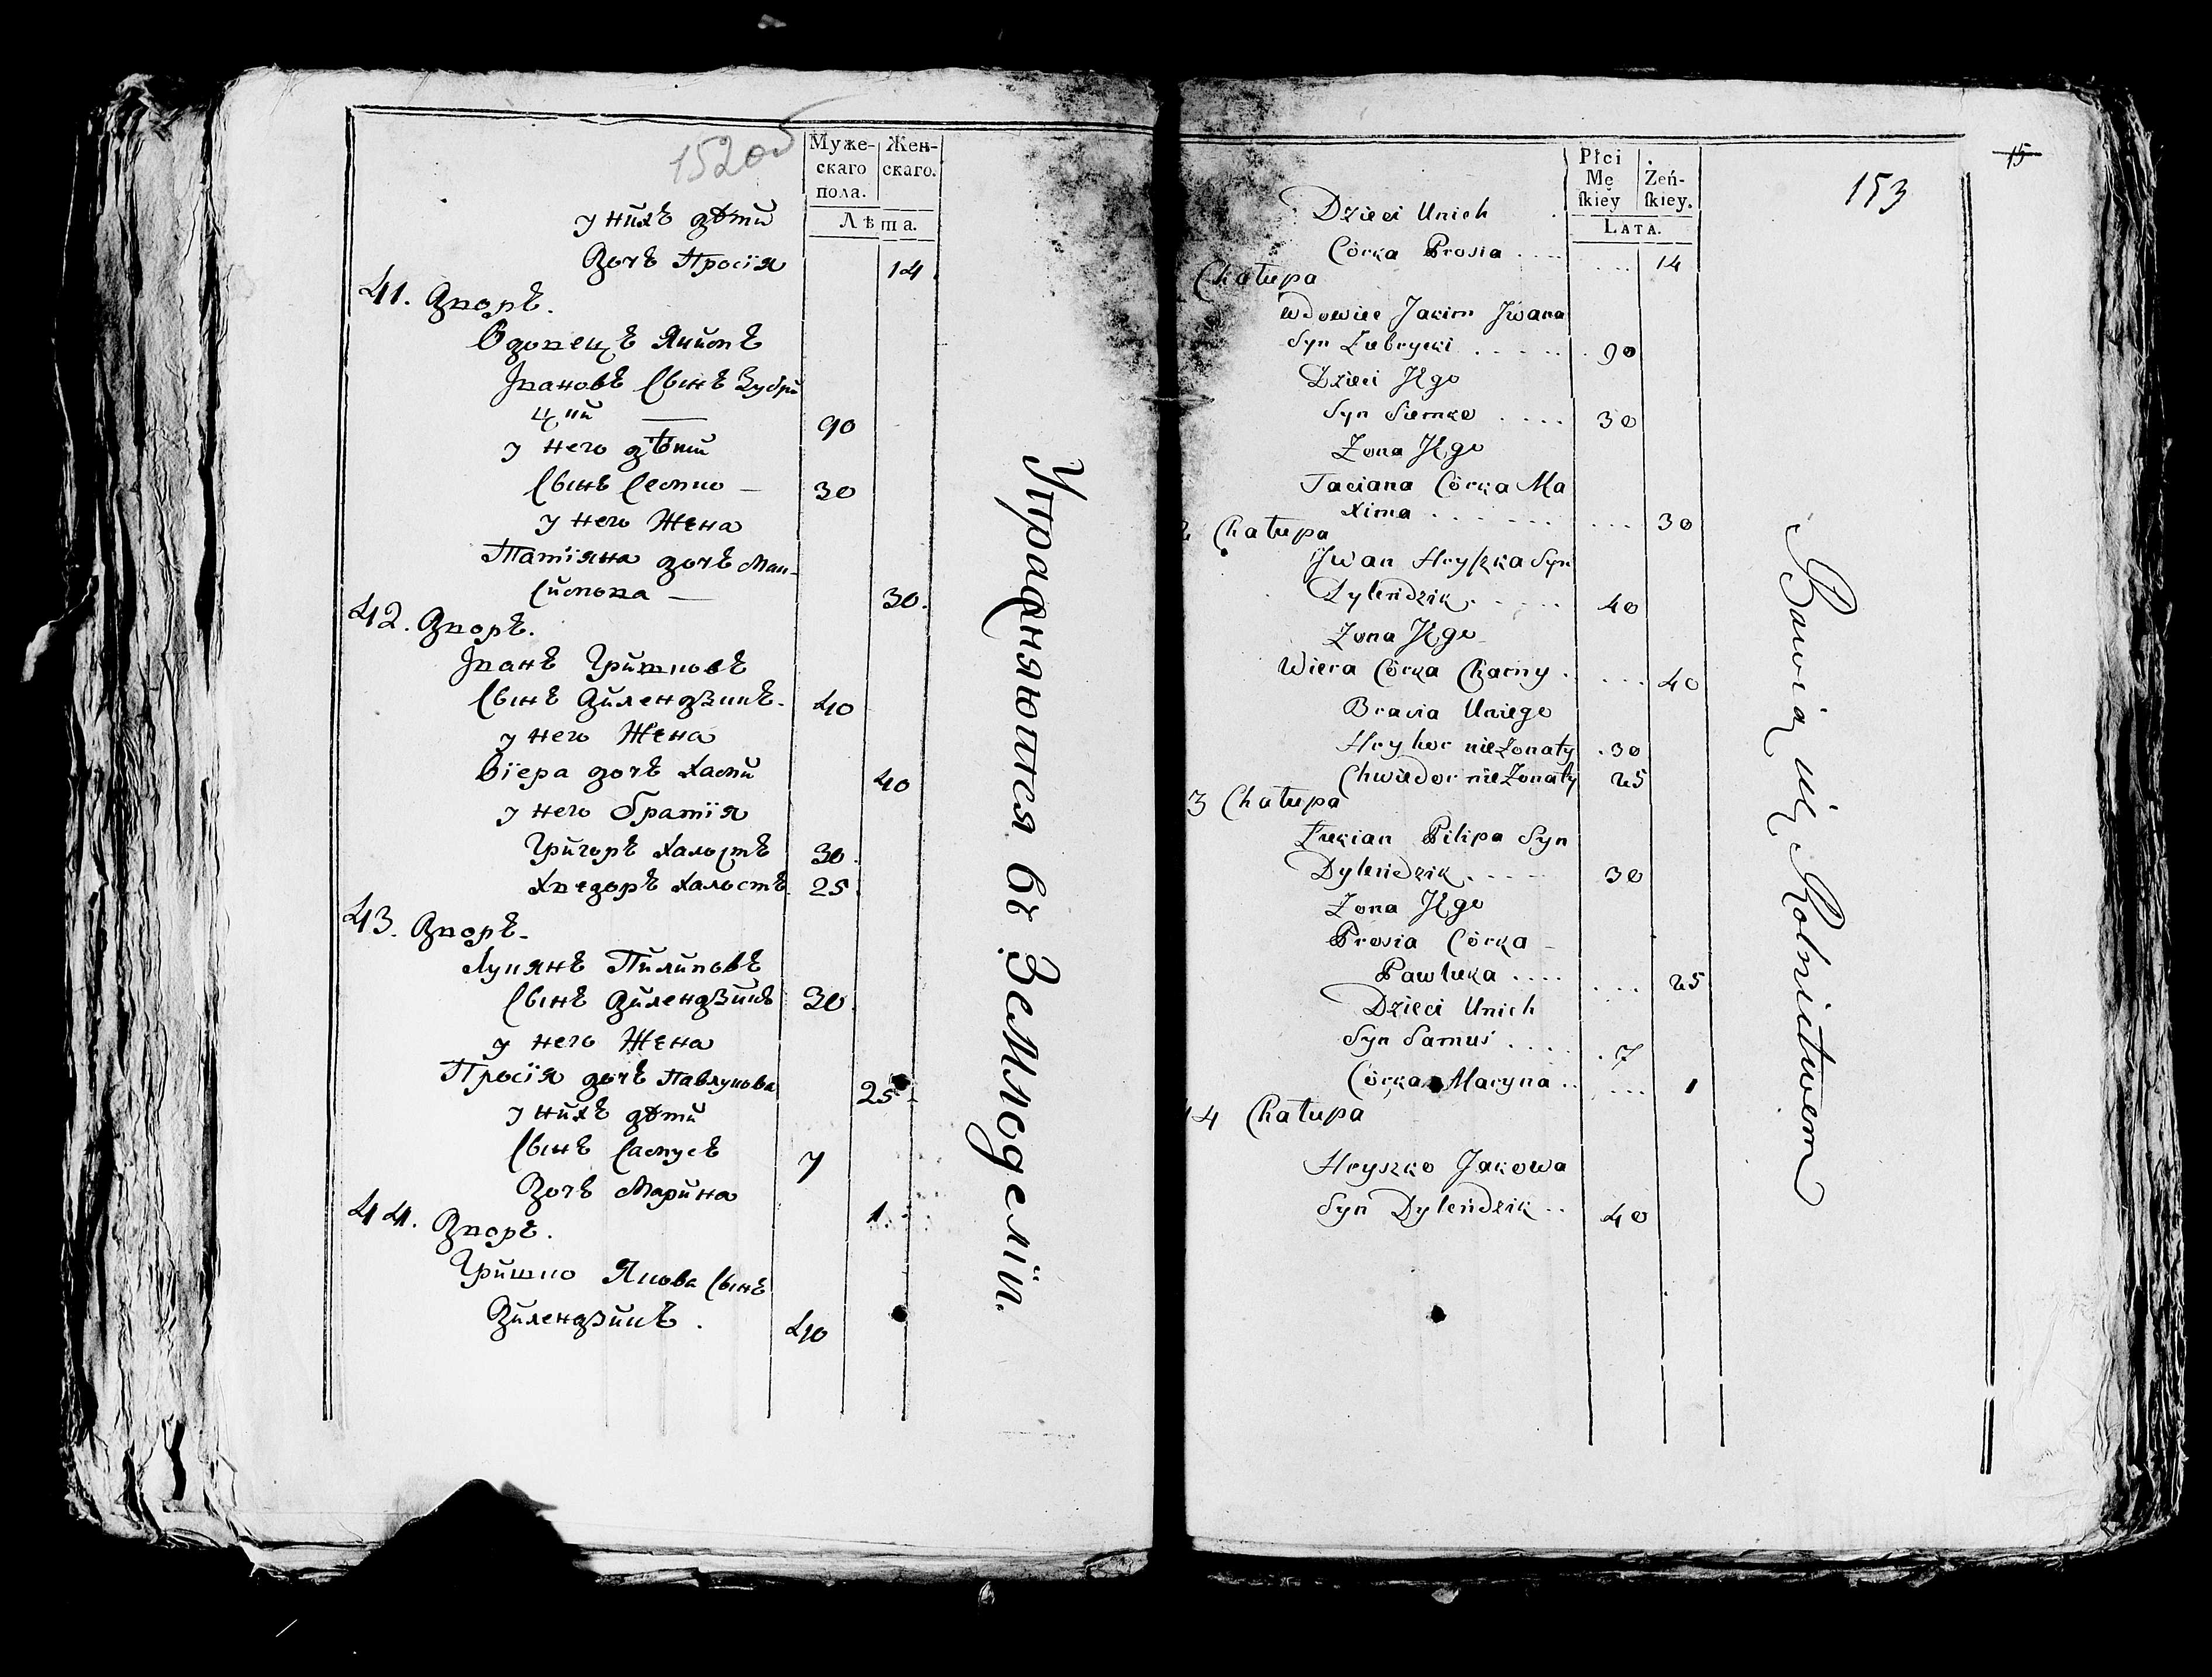 152об
Муже- Жен-
скаго скаго.
пола.
Лѣта.
у нихъ дѣти
Дочь Просія 14
41. Дворъ.
Вдовецъ Якимъ
Ивановъ Сынъ Зубри
цкій 90
у него дѣти
Сынъ Семко 30
у него Жена
Татіяна дочь Мак-
Симова 30.
42. Дворъ.
Иванъ Гришковъ
Сынъ Дилендзикъ. 40
у него Жена
Віера дочь Хами 40
у него братія
Григоръ Халостъ 30.
Хведоръ Халостъ 25.
43. Дворъ.
Лукянъ Пилиповъ
Сынъ Дилендзикъ 30.
у него Жена
Просія дочь Павлукова 25
у нихъ дѣти
Сынъ Самусь 7
Дочь Марина 1
44. Дворъ.
Гришко Якова Сынъ
Дилендзикъ. 40
Упражняются въ Земледеліи.
15
153
Płci
Mę Żeń-
ſkiey ſkiey.
LATA.
Dzieci Unich
Córka Prosia . . . . 14
Chałupa
Wdowiec Jakim Jwana
Syn Zubrycki . . . . . 90
Dzieci Jego
Syn Siemko . . . . 30
Żona Jego
Taciana Córka Ma
xima . . . . . . 30
2 Chałupa
Jwan Hryſzka Syn
Dylendzik . . . . . 40
Żona Jego
Wiera Córka Chamy . . . . 40
Bracia Uniego
Hryhor nieżonaty . 30
Chwiedor nieżonaty 25
3 Chałupa
Łukian Pilipa Syn
Dylendzik . . . . 30
Żona Jego
Prosia Córka
Pawluka . . . . . . . 25
Dzieci Unich
Syn Samuś . . . . . 7
Córka Maryna . . . . . 1
44 Chałupa
Hryszko Jakowa
Syn Dylendzik . . 40
Bawią się Rolnictwem